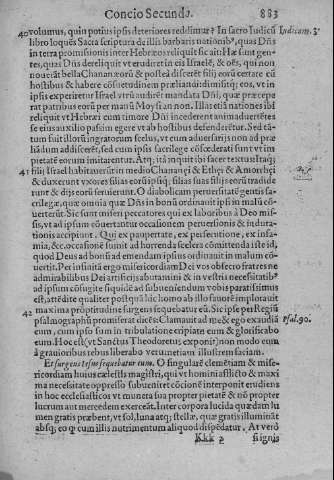 Concio Secunda. 883
40 volumus, quin potius ipsis deteriores reddimur? In sacro Iudicũ Iudicum. 3.
libro loquẽs Sacra scriptura de illis barbaris nationib⁹, quas Dñs
in terra promissionis inter Hebræos reliquit sic ait: Hæ sunt gen-
tes, quas Dñs dereliquit vt erudiret in eis Israelẽ, & oẽs, qui non
nouerãt bella Chananæorũ & posteà discerẽt filij eorũ certare cũ
hostibus & habere cõsuetudinem præliandi: dimisitq; eos, vt in
ipsis experiretur Israel vtrũ audiret mandata Dñi, quæ præcepe
rat patribus eorũ per manũ Moysi an non. Illas etiã nationes ibi
reliquit vt Hebræi cum timore Dñi incederent animaduertẽtes
se eius auxilio passim egere vt ab hostibus defenderẽtur. Sed tã-
tum fuit illorũ ingratorum scelus, vt cum aduersarij non ad præ
liandum addiscerẽt, sed cum ipsis sacrilege cõfœderati sunt vt im
pietatẽ eorum imitarentur. Atq; ità inquit ibi sacer textus: Itaq;
41 filij Israel habitauerũt in medio Chananęi & Ethęi & Amorhęi
& duxerunt vxores filias eorũ ipsiq; filias suas filijs eorũ tradide
runt & dijs eorũ seruierunt. O diabolicam peruersitatẽ gentis sa-
crilegæ, quæ omnia quæ Dñs in bonũ ordinauit ipsi in malũ cõ-
uerterũt. Sic sunt miseri peccatores qui ex laboribus à Deo mis-
sis, vt ad ipsum cõuertantur occasionem peruersionis & indura-
tionis accipiunt. Qui ex paupertate, ex persecutione, ex infa-
mia, &c. occasionẽ sumit ad horrenda scelera comittenda iste id,
quod Deus ad bonũ ad emendam ipsius ordinauit in malum cõ-
uertit. Per infinitã ergo misericordiam Dei vos obsecro fratres ne
admirabilibus Dei artificijs abutamini & in vestris necessitatib⁹
ad ipsum cõfugite siquidẽ ad subueniendum vobis paratissimus
est, attẽdite qualiter postquã hic homo ab illo fauorẽ implorauit
42 maxima promptitudine surgens sequebatur eũ. Sic ipse per Regiũ
psalmographũ promiserat dicẽs: Clamauit ad me & ego exaudiã Psal. 90.
eum, cum ipso sum in tribulatione eripiam eum & glorificabo
eum. Hoc est (vt Sanctus Theodoretus exponit) non modo eum
à grauioribus rebus liberabo verumetiam illustrem faciam.
Et surgens Iesus sequebatur eum. O singularẽ clemẽtiam & mise-
ricordiam huius cælestis magistri, qui vt homini afflicto & maxi
ma necessitate oppresso subueniret cõcionẽ interponit erudiens
in hoc ecclesiasticos vt munera sua propter pietatẽ & nõ propter
lucrum aut mercedem exerceãt. Inter corpora lucida quædam lu
men gratis præbent, vt sol, luna atq; stellæ, quæ gratis illuminãt
absq; eo q̃ cum illis nutrimentum aliquod dispẽdatur. At verò
Kkk 2 signis